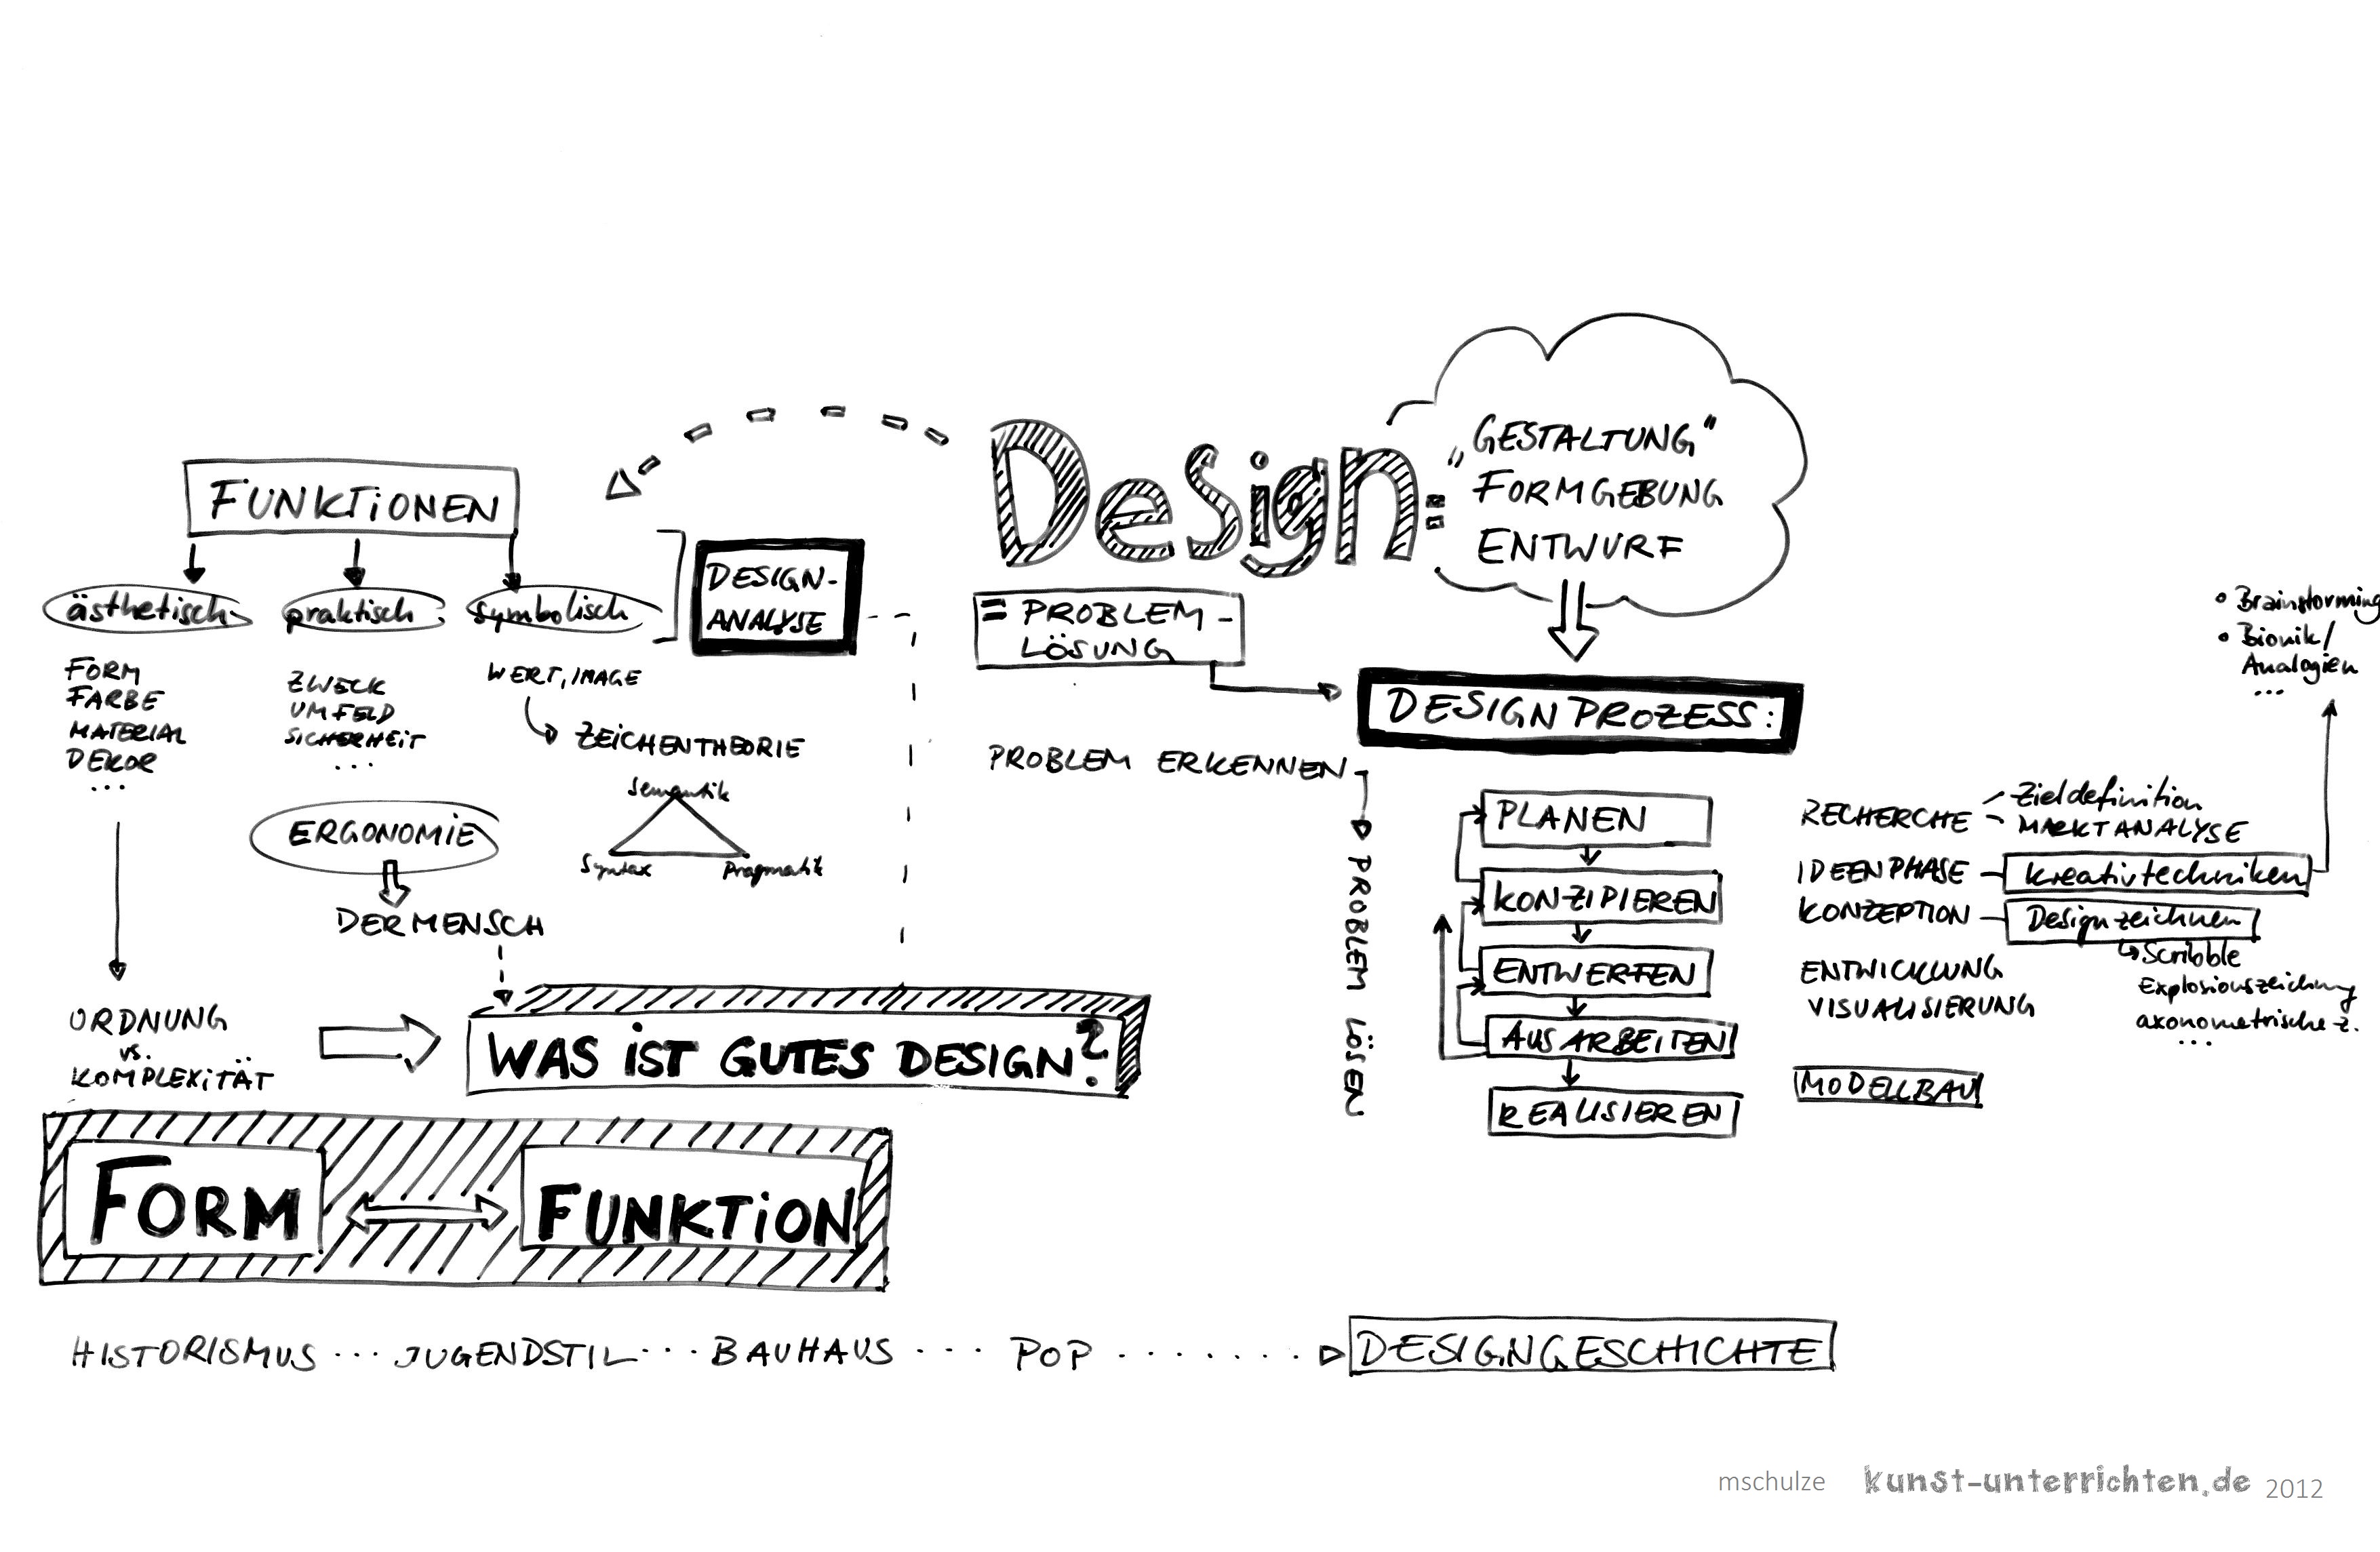 Design =
„GESTALTUNG"
FORMGEBUNG
ENTWURF
= PROBLEM-
LÖSUNG
FUNKTIONEN
ästhetisch
praktisch
symbolisch
DESIGN-
ANALYSE
FORM
FARBE
MATERIAL
DEKOR
...
ZWECK
UMFELD
SICHERHEIT
...
WERT, IMAGE
ZEICHENTHEORIE
Semantik
Syntax
Pragmatik
ERGONOMIE
DER MENSCH
ORDNUNG
vs.
KOMPLEXITÄT
WAS IST GUTES DESIGN?
FORM
FUNKTION
DESIGNPROZESS:
PROBLEM ERKENNEN
PROBLEM LÖSEN
PLANEN
KONZIPIEREN
ENTWERFEN
AUSARBEITEN
REALISIEREN
RECHERCHE
Zieldefinition
MARKTANALYSE
IDEENPHASE
Kreativtechniken
• Brainstorming
• Bionik/
Analogien
...
KONZEPTION
Designzeichnen
Scribble
Explosionszeichnung
axonometrische Z.
...
ENTWICKLUNG
VISUALISIERUNG
MODELLBAU
HISTORISMUS ... JUGENDSTIL ... BAUHAUS ... POP ....... DESIGNGESCHICHTE
mschulze kunst-unterrichten.de 2012